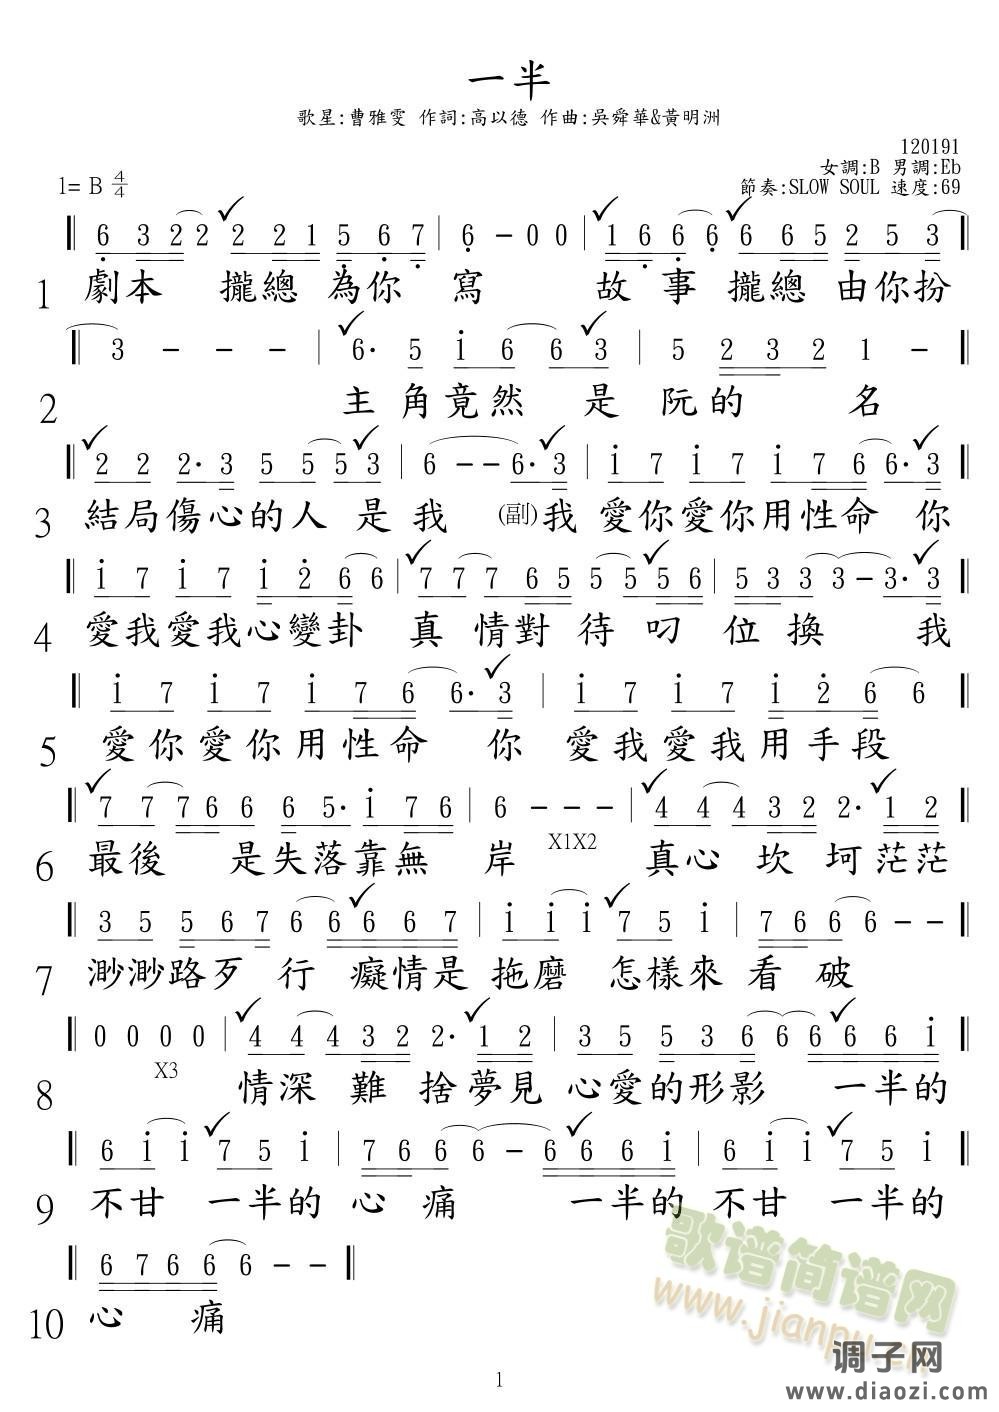 一半
歌星:曹雅雯 作詞:高以德 作曲:吳舜華&黃明洲
120191
女調:B 男調:Eb
1= B 4/4
節奏:SLOW SOUL 速度:69
‖ 6 3 2 2 2 2 2 1 5 6 7 | 6 - 0 0 | 1 6 6 6 6 6 5 2 5 3 ‖
1 劇本 攏總為你 寫 故 事 攏總 由你扮
‖ 3 - - - | 6· 5 i 6 6 3 | 5 2 3 2 1 - ‖
2 主角竟然 是 阮的 名
‖ 2 2 2· 3 5 5 5 3 | 6 - - 6· 3 | i 7 i 7 i 7 6 6· 3 ‖
3 結局傷心的人 是我 (副)我 愛你愛你用性命 你
‖ i 7 i 7 i 2 6 6 | 7 7 7 6 5 5 5 5 6 | 5 3 3 3 3 - 3· 3 ‖
4 愛我愛我心變卦 真 情對 待 叨 位換 我
‖ i 7 i 7 i 7 6 6· 3 | i 7 i 7 i 2 6 6 ‖
5 愛你愛你用性命 你 愛我愛我用手段
‖ 7 7 7 6 6 6 5· i 7 6 | 6 - - - | 4 4 4 3 2 2· 1 2 ‖
6 最後 是失落靠無 岸 X1X2 真心坎 坷茫茫
‖ 3 5 5 6 7 6 6 6 6 7 | i i i 7 5 i | 7 6 6 6 - - ‖
7 渺渺路歹 行 癡情是 拖磨 怎樣來 看 破
‖ 0 0 0 0 | 4 4 4 3 2 2· 1 2 | 3 5 5 3 6 6 6 6 6 i ‖
X3
8 情深 難 捨夢見 心愛的形影 一半的
‖ 6 i i 7 5 i | 7 6 6 6 - 6 6 6 i | 6 i i 7 5 i ‖
9 不甘 一半的 心 痛 一半的 不甘 一半的
‖ 6 7 6 6 6 - - ‖
10 心 痛
歌谱简谱网
www.jianpu.cn
调子网
www.diaozi.com
1